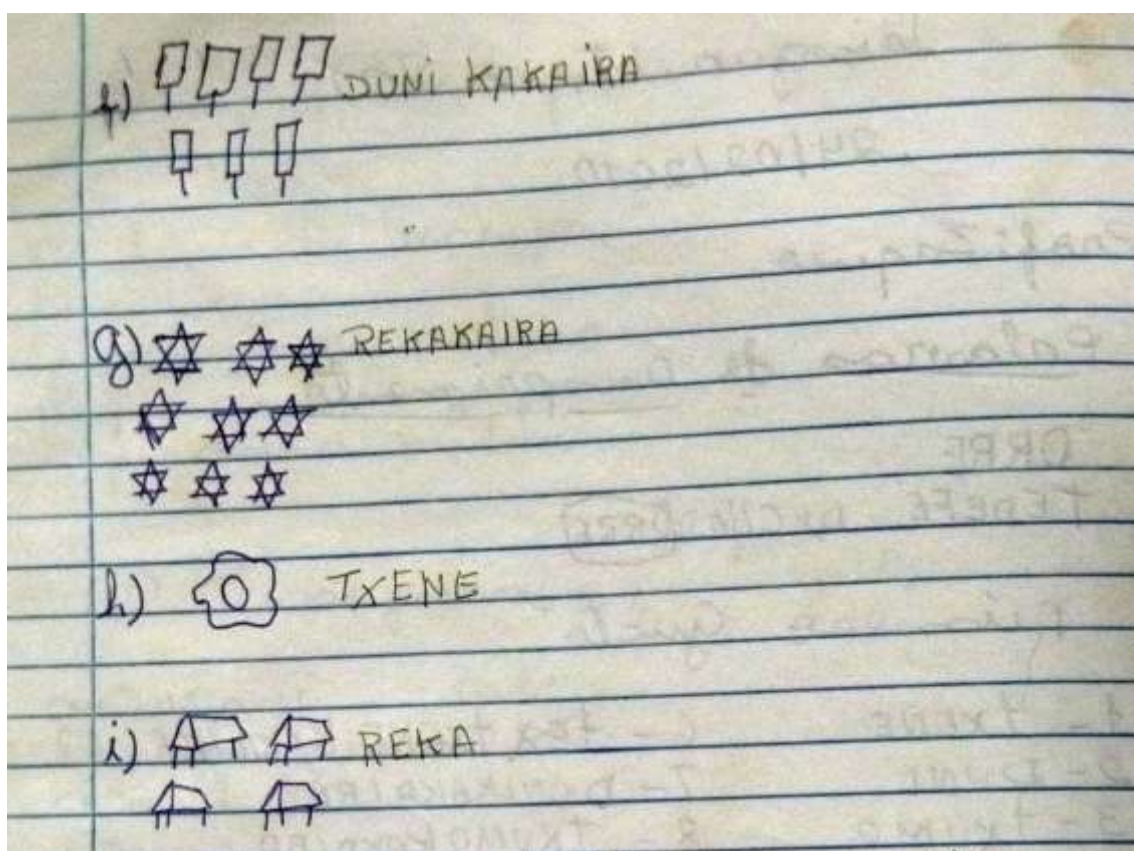 f) DUNI KAKAIRA
g) REKAKAIRA
h) TXENE
i) REKA